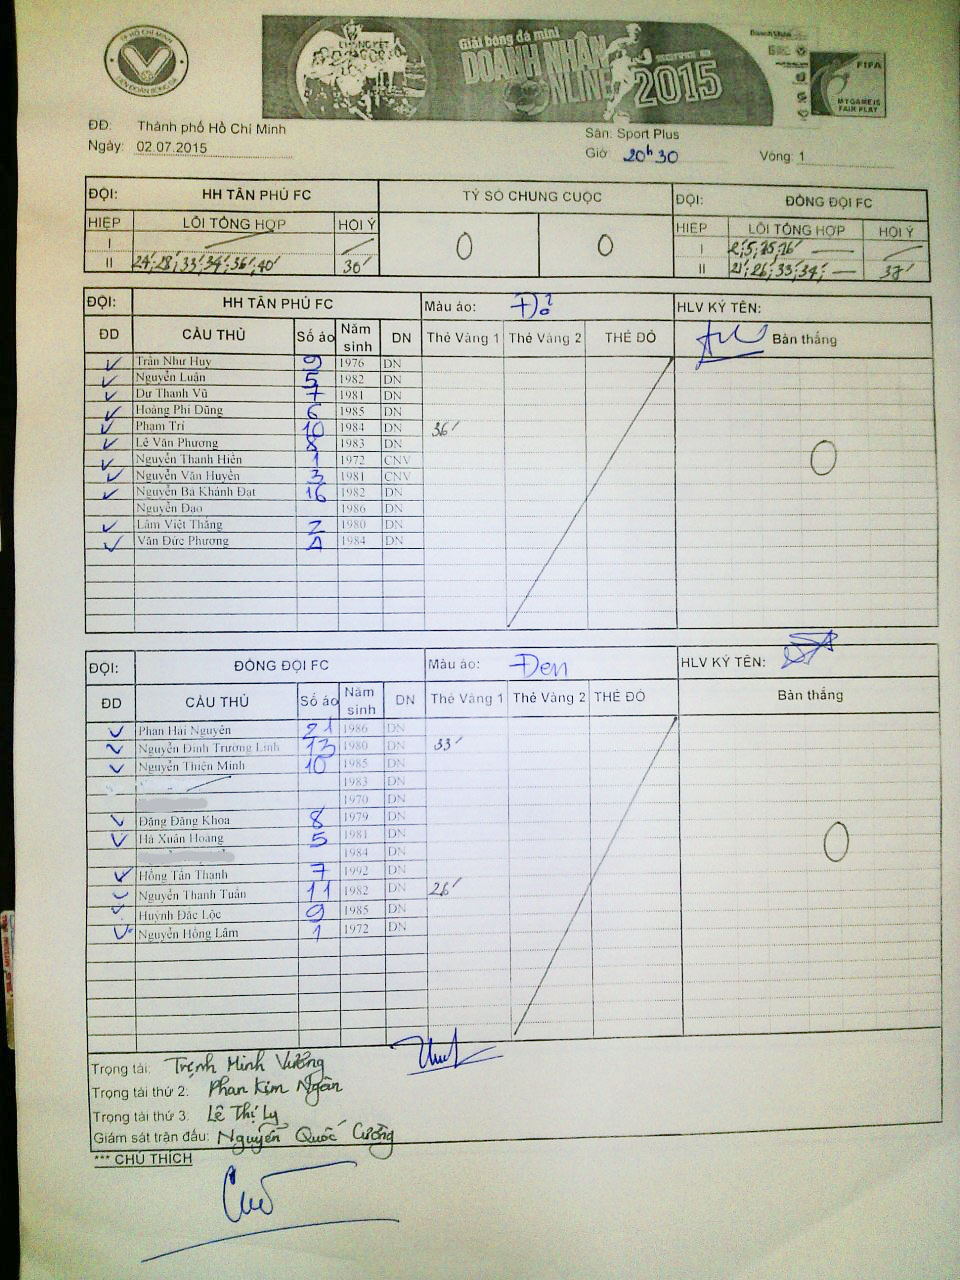 TP HỒ CHÍ MINH
LIÊN ĐOÀN BÓNG ĐÁ
Giải bóng đá mini
DOANH NHÂN
ONLINE
2015
FIFA
MY GAME IS
FAIR PLAY
ĐĐ: Thành phố Hồ Chí Minh
Sân: Sport Plus
Ngày: 02.07.2015
Giờ 20h30 Vòng: 1
ĐỘI: HH TÂN PHÚ FC TỶ SỐ CHUNG CUỘC ĐỘI: ĐỒNG ĐỘI FC
HIỆP LỖI TỔNG HỢP HỘI Ý 0 0 HIỆP LỖI TỔNG HỢP HỘI Ý
I I 2', 5', 15', 16'
II 24', 28', 33', 34', 36', 40' 30' II 21', 26', 33', 34' 37'
ĐỘI: HH TÂN PHÚ FC Màu áo: Đỏ HLV KÝ TÊN:
ĐD CẦU THỦ Số áo Năm sinh DN Thẻ Vàng 1 Thẻ Vàng 2 THẺ ĐỎ Bàn thắng
Trần Như Huy 9 1976 DN
Nguyễn Luận 5 1982 DN
Dư Thanh Vũ 7 1981 DN
Hoàng Phi Dũng 6 1985 DN
Phạm Trí 10 1984 DN 36'
Lê Văn Phương 8 1983 DN
Nguyễn Thanh Hiền 1 1972 CNV 0
Nguyễn Văn Huyền 3 1981 CNV
Nguyễn Bá Khánh Đạt 16 1982 DN
Nguyễn Đạo 1986 DN
Lâm Việt Thắng 2 1980 DN
Văn Đức Phương 1984 DN
ĐỘI: ĐỒNG ĐỘI FC Màu áo: Đen HLV KÝ TÊN:
ĐD CẦU THỦ Số áo Năm sinh DN Thẻ Vàng 1 Thẻ Vàng 2 THẺ ĐỎ Bàn thắng
Phan Hải Nguyên 21 1986 DN
Nguyễn Đình Trường Linh 13 1980 DN 33'
Nguyễn Thiện Minh 10 1985 DN
1983 DN
1970 DN
Đặng Đăng Khoa 8 1979 DN
Hà Xuân Hoàng 5 1981 DN 0
1984 DN
Hồng Tấn Thạnh 7 1992 DN
Nguyễn Thanh Tuấn 11 1982 DN 26'
Huỳnh Đắc Lộc 9 1985 DN
Nguyễn Hồng Lâm 1 1972 DN
Trọng tài: Trịnh Minh Vương
Trọng tài thứ 2: Phan Kim Ngân
Trọng tài thứ 3. Lê Thị Ly
Giám sát trận đấu: Nguyễn Quốc Cường
*** CHÚ THÍCH